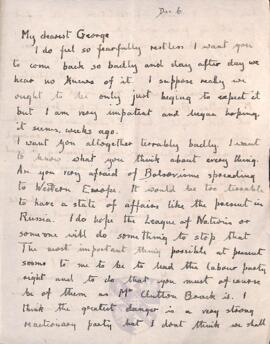 Dec 6.
My dearest George
I do feel so fearfully restless I want you
to come back so badly and day after day we
hear no knews of it. I suppose really we
ought to be only just beging to expect it
but I am very impatient and began hoping,
it seems, weeks ago.
I want you altogether terrably badly. I want
to know what you think about every thing.
Are you very afraid of Bolsovism spreading
to Western Europe. It would be too terrable
to have a state of affairs like the present in
Russia. I do hope the League of Nations or
someone will do something to stop that
The most important thing possible at present
seems to me to be to lead the labour party
right and to do that you must of course
be of them as Mr Clutton Brock is. I
think the greatest danger is a very strong
reactionary party but I dont think we shall